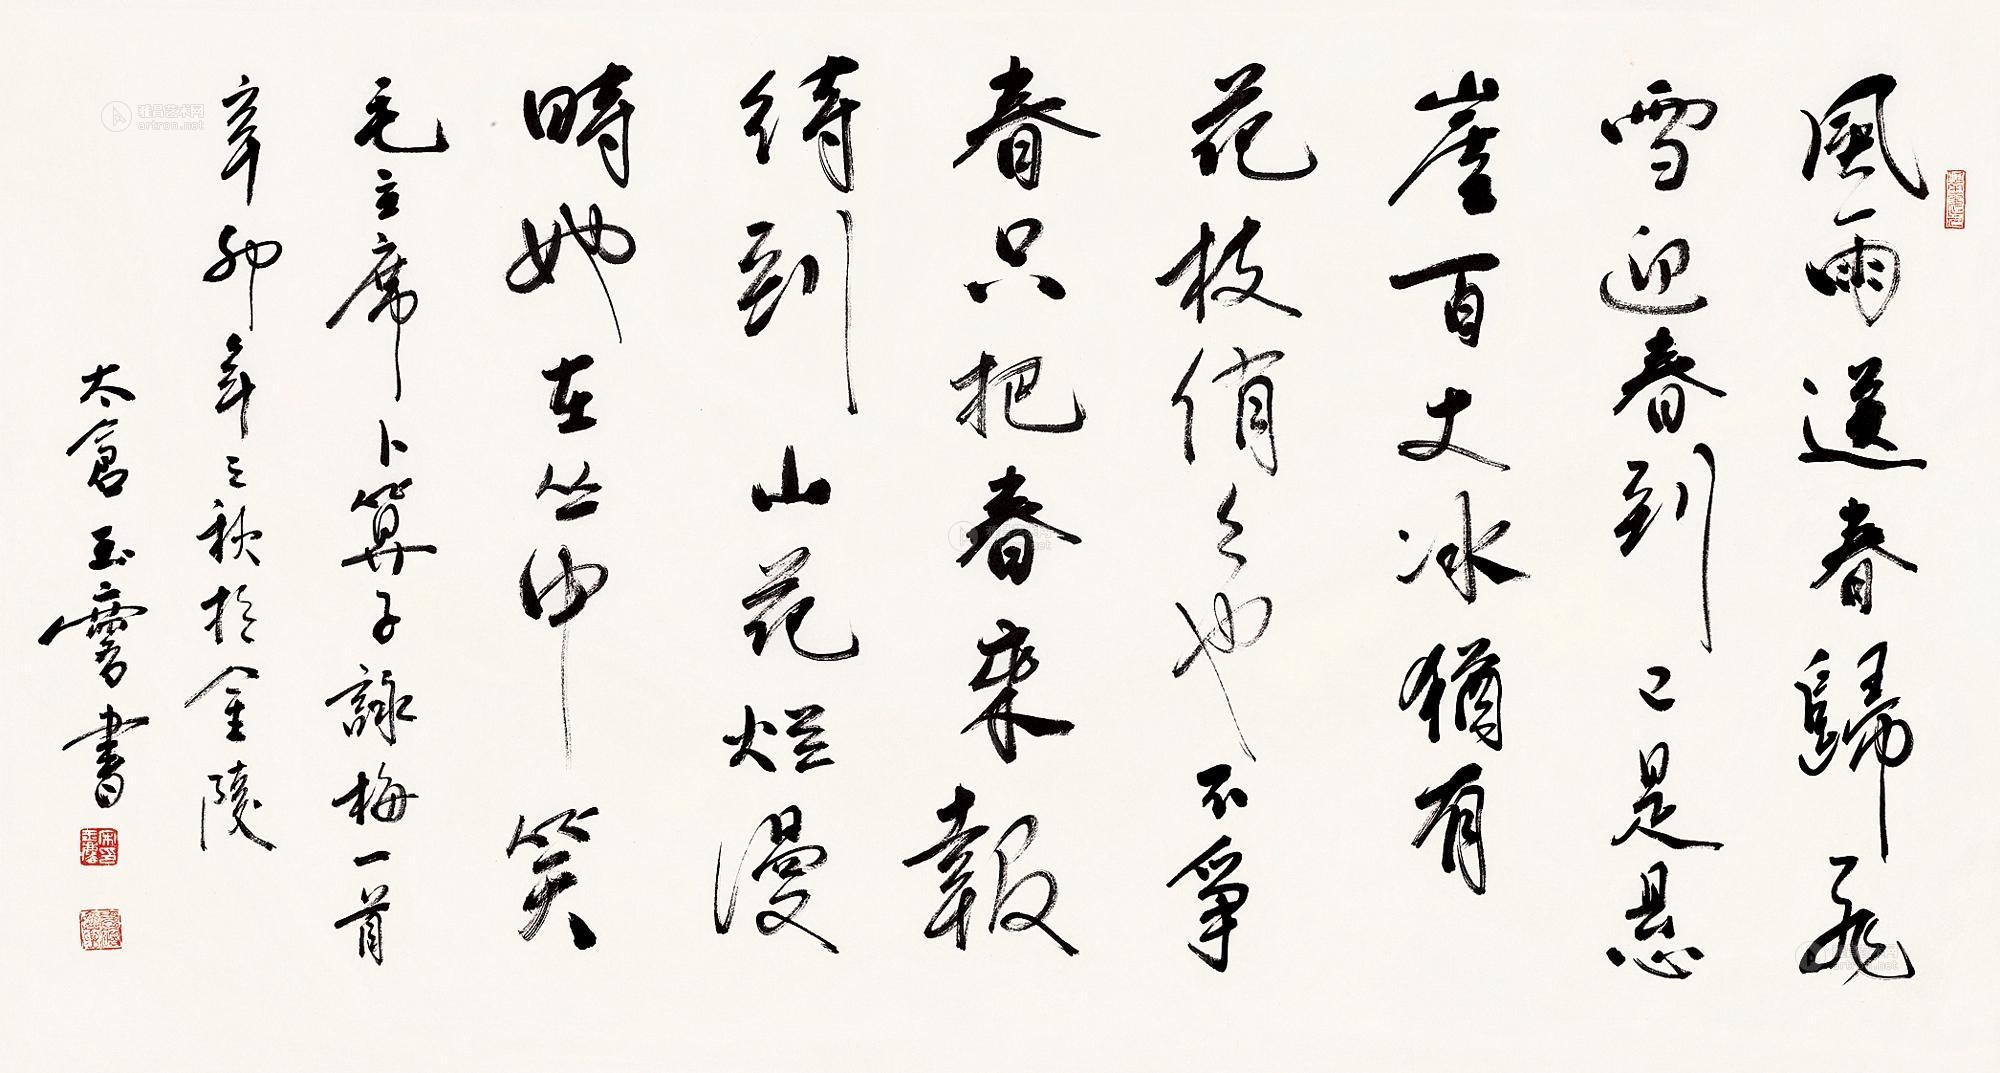 風雨送春歸飛
雪迎春到已是懸
崖百丈冰猶有
花枝俏俏也不爭
春只把春來報
待到山花爛漫
時她在丛中笑
毛主席卜算子詠梅一首
辛卯年之秋於金陵
太倉玉麐書
雅昌艺术网
artron.net